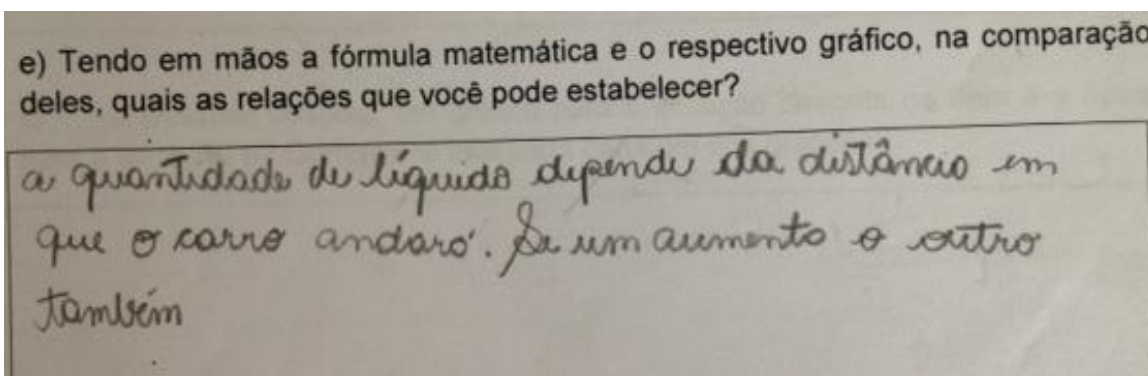 e) Tendo em mãos a fórmula matemática e o respectivo gráfico, na comparação
deles, quais as relações que você pode estabelecer?
a quantidade de líquido depende da distância em
que o carro andará. Se um aumenta o outro
também